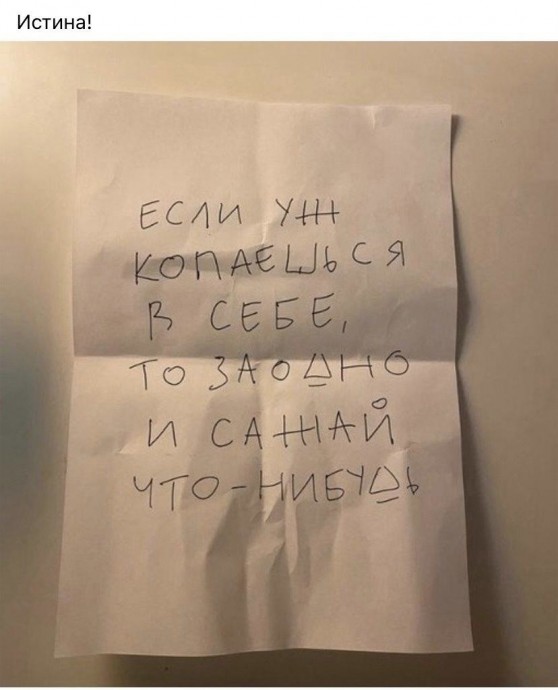 Истина!
ЕСЛИ УЖ
КОПАЕШЬСЯ
В СЕБЕ,
ТО ЗАОДНО
И САЖАЙ
ЧТО-НИБУДЬ